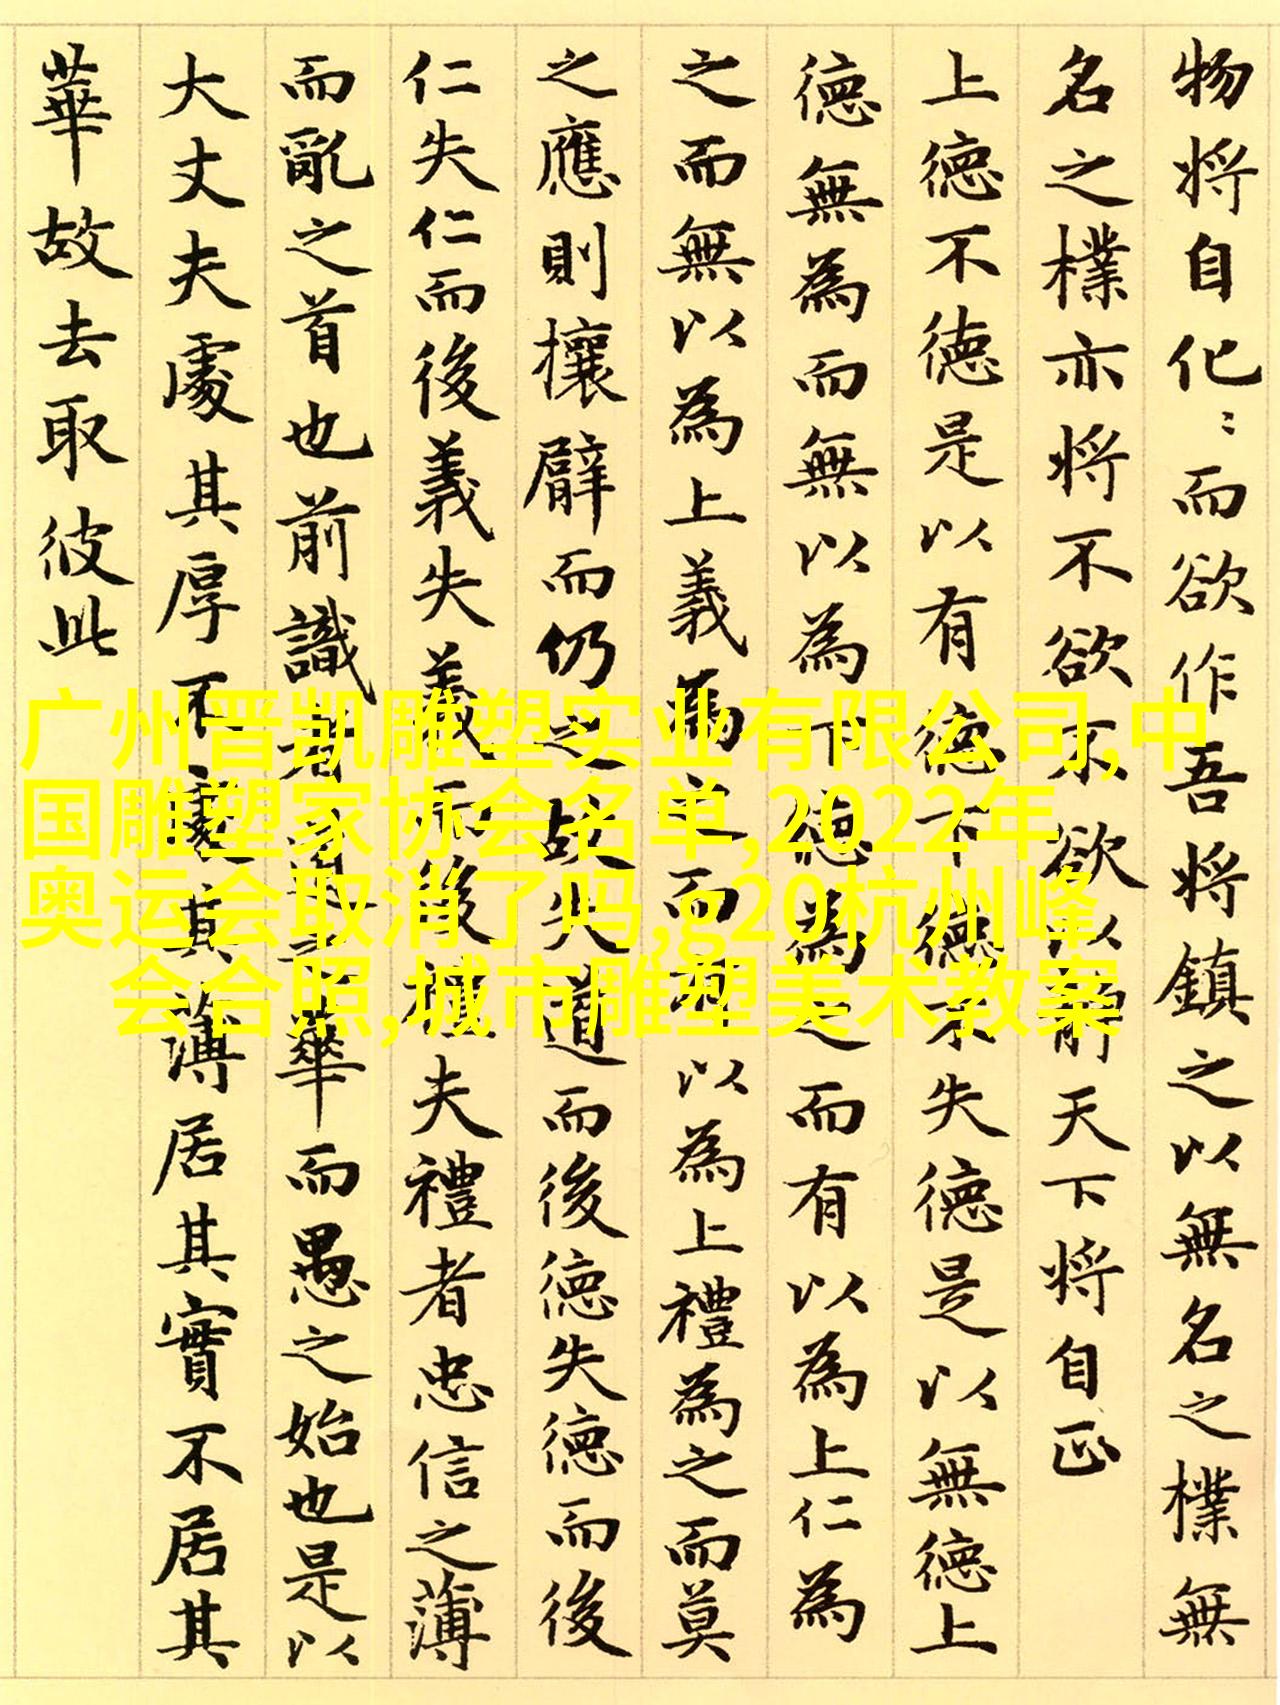 物将自化〻而欲作吾将鎮之以無名之樸無
名之樸亦将不欲不欲以静天下将自正
上德不德是以有德下德不失德是以無德上
德無為而無以為下德為之而有以為上仁為
之而無以為上義為之而有以為上禮為之而莫
之應則攘臂而仍之故失道而後德失德而後
仁失仁而後義失義而後禮夫禮者忠信之薄
而亂之首也前識者道之華而愚之始也是以
大丈夫處其厚不處其薄居其實不居其
華故去取彼此
广州晋凯雕塑实业有限公司,中
国雕塑家协会名单,2022年
奥运会取消了吗,g20杭州峰
会合照,城市雕塑美术教案